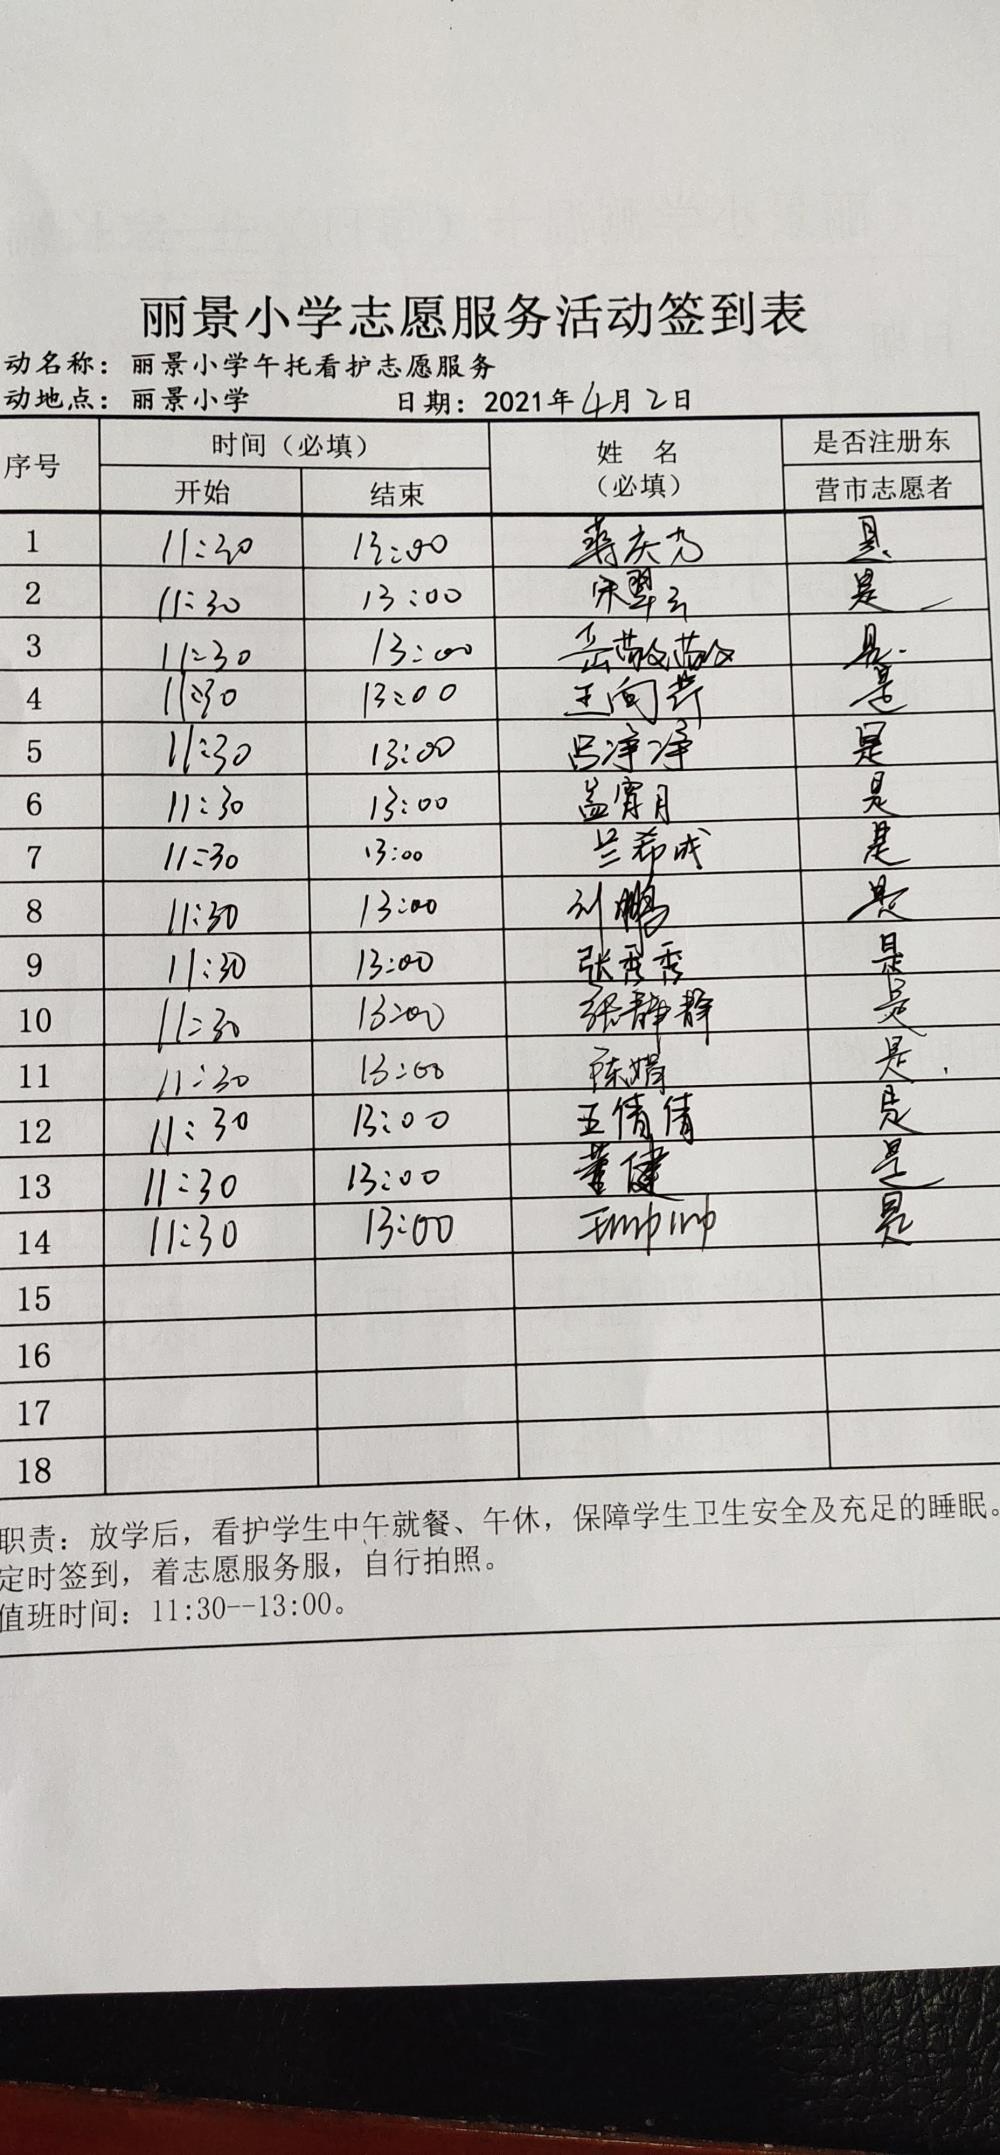 丽景小学志愿服务活动签到表
动名称：丽景小学午托看护志愿服务
动地点：丽景小学 日期：2021年4月2日
序号 时间（必填） 姓 名（必填） 是否注册东营市志愿者
开始 结束
1 11:30 13:00 蒋庆方 是
2 11:30 13:00 宋翠云 是
3 11:30 13:00 岳敬敬 是
4 11:30 13:00 王向芹 是
5 11:30 13:00 吕净净 是
6 11:30 13:00 孟宵月 是
7 11:30 13:00 兰希成 是
8 11:30 13:00 刘鹏 是
9 11:30 13:00 张秀秀 是
10 11:30 13:00 张静静 是
11 11:30 13:00 陈娟 是
12 11:30 13:00 王倩倩 是
13 11:30 13:00 董健 是
14 11:30 13:00 是
15
16
17
18
职责：放学后，看护学生中午就餐、午休，保障学生卫生安全及充足的睡眠。
定时签到，着志愿服务服，自行拍照。
值班时间：11:30--13:00。